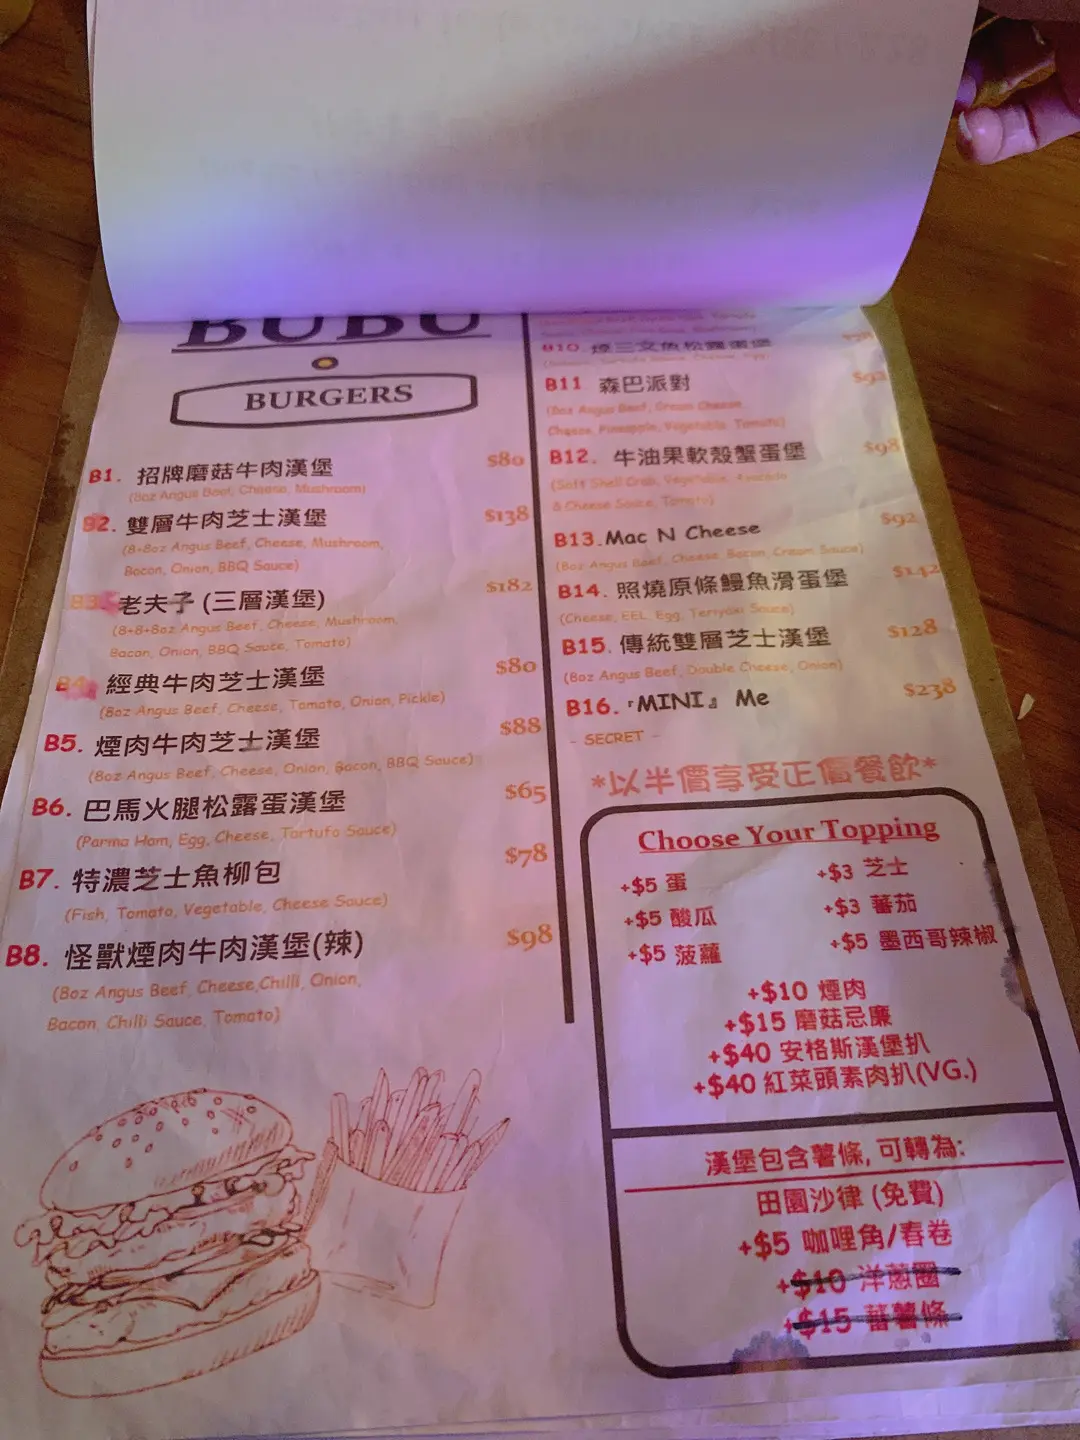 BUBU
BURGERS
B1. 招牌磨菇牛肉漢堡 $80
(8oz Angus Beef, Cheese, Mushroom)
B2. 雙層牛肉芝士漢堡 $138
(8+8oz Angus Beef, Cheese, Mushroom,
Bacon, Onion, BBQ Sauce)
B3. 老夫子 (三層漢堡) $182
(8+8+8oz Angus Beef, Cheese, Mushroom,
Bacon, Onion, BBQ Sauce, Tomato)
B4. 經典牛肉芝士漢堡 $80
(8oz Angus Beef, Cheese, Tomato, Onion, Pickle)
B5. 煙肉牛肉芝士漢堡 $88
(8oz Angus Beef, Cheese, Onion, Bacon, BBQ Sauce)
B6. 巴馬火腿松露蛋漢堡 $65
(Parma Ham, Egg, Cheese, Tartufo Sauce)
B7. 特濃芝士魚柳包 $78
(Fish, Tomato, Vegetable, Cheese Sauce)
B8. 怪獸煙肉牛肉漢堡(辣) $98
(8oz Angus Beef, Cheese,Chilli, Onion,
Bacon, Chilli Sauce, Tomato)
B10. 煙三文魚松露蛋漢堡
B11 森巴派對 $92
(8oz Angus Beef, Cream Cheese,
Cheese, Pineapple, Vegetable, Tomato)
B12. 牛油果軟殼蟹蛋堡 $98
(Soft Shell Crab, Vegetable, Avocado
& Cheese Sauce, Tomato)
B13.Mac N Cheese $92
(8oz Angus Beef, Cheese, Bacon, Cream Sauce)
B14. 照燒原條鰻魚滑蛋堡 $142
(Cheese, EEL, Egg, Teriyaki Sauce)
B15. 傳統雙層芝士漢堡 $128
(8oz Angus Beef, Double Cheese, Onion)
B16.『MINI』Me $238
- SECRET -
*以半價享受正價餐飲*
Choose Your Topping
+$5 蛋 +$3 芝士
+$5 酸瓜 +$3 蕃茄
+$5 菠蘿 +$5 墨西哥辣椒
+$10 煙肉
+$15 磨菇忌廉
+$40 安格斯漢堡扒
+$40 紅菜頭素肉扒(VG.)
漢堡包含薯條, 可轉為:
田園沙律 (免費)
+$5 咖哩角/春卷
+$10 洋蔥圈
+$15 蕃薯條